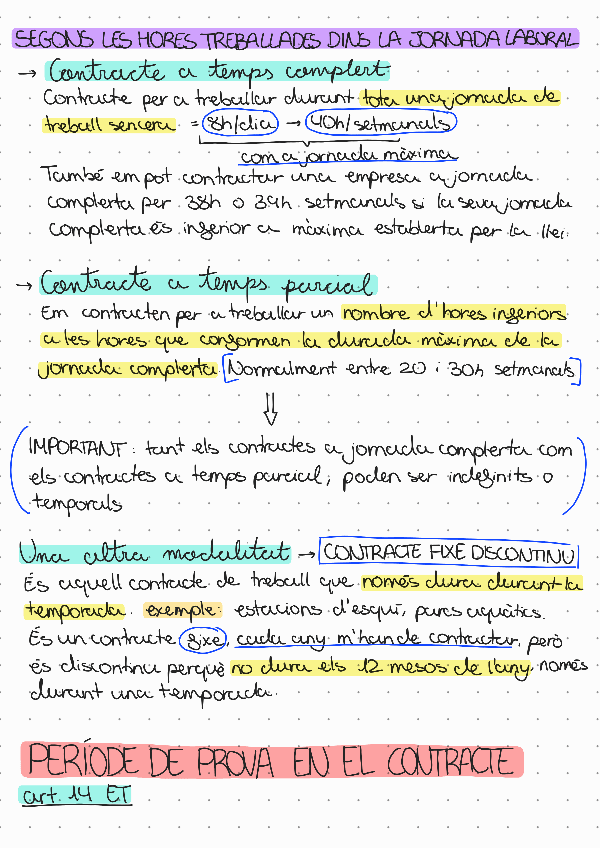 SEGONS LES HORES TREBALLADES DINS LA JORNADA LABORAL
→ Contracte a temps complert
Contracte per a treballar durant tota una jornada de
treball sencera = 8h/dia → 40h/setmanals
com a jornada màxima
També em pot contractar una empresa a jornada
complerta per 38h o 39h setmanals si la seva jornada
complerta és inferior a màxima establerta per la llei.
→ Contracte a temps parcial
Em contracten per a treballar un nombre d'hores inferiors
a les hores que conformen la durada màxima de la
jornada complerta. [Normalment entre 20 i 30h setmanals]
⇓
(IMPORTANT: tant els contractes a jornada complerta com
els contractes a temps parcial, poden ser indefinits o
temporals)
Una altra modalitat → CONTRACTE FIXE DISCONTINU
És aquell contracte de treball que només dura durant la
temporada. exemple: estacions d'esquí, parcs aquàtics.
És un contracte fixe, cada any m'han de contractar, però
és discontinu perquè no dura els 12 mesos de l'any, només
durant una temporada.
PERÍODE DE PROVA EN EL CONTRACTE
art. 14 ET